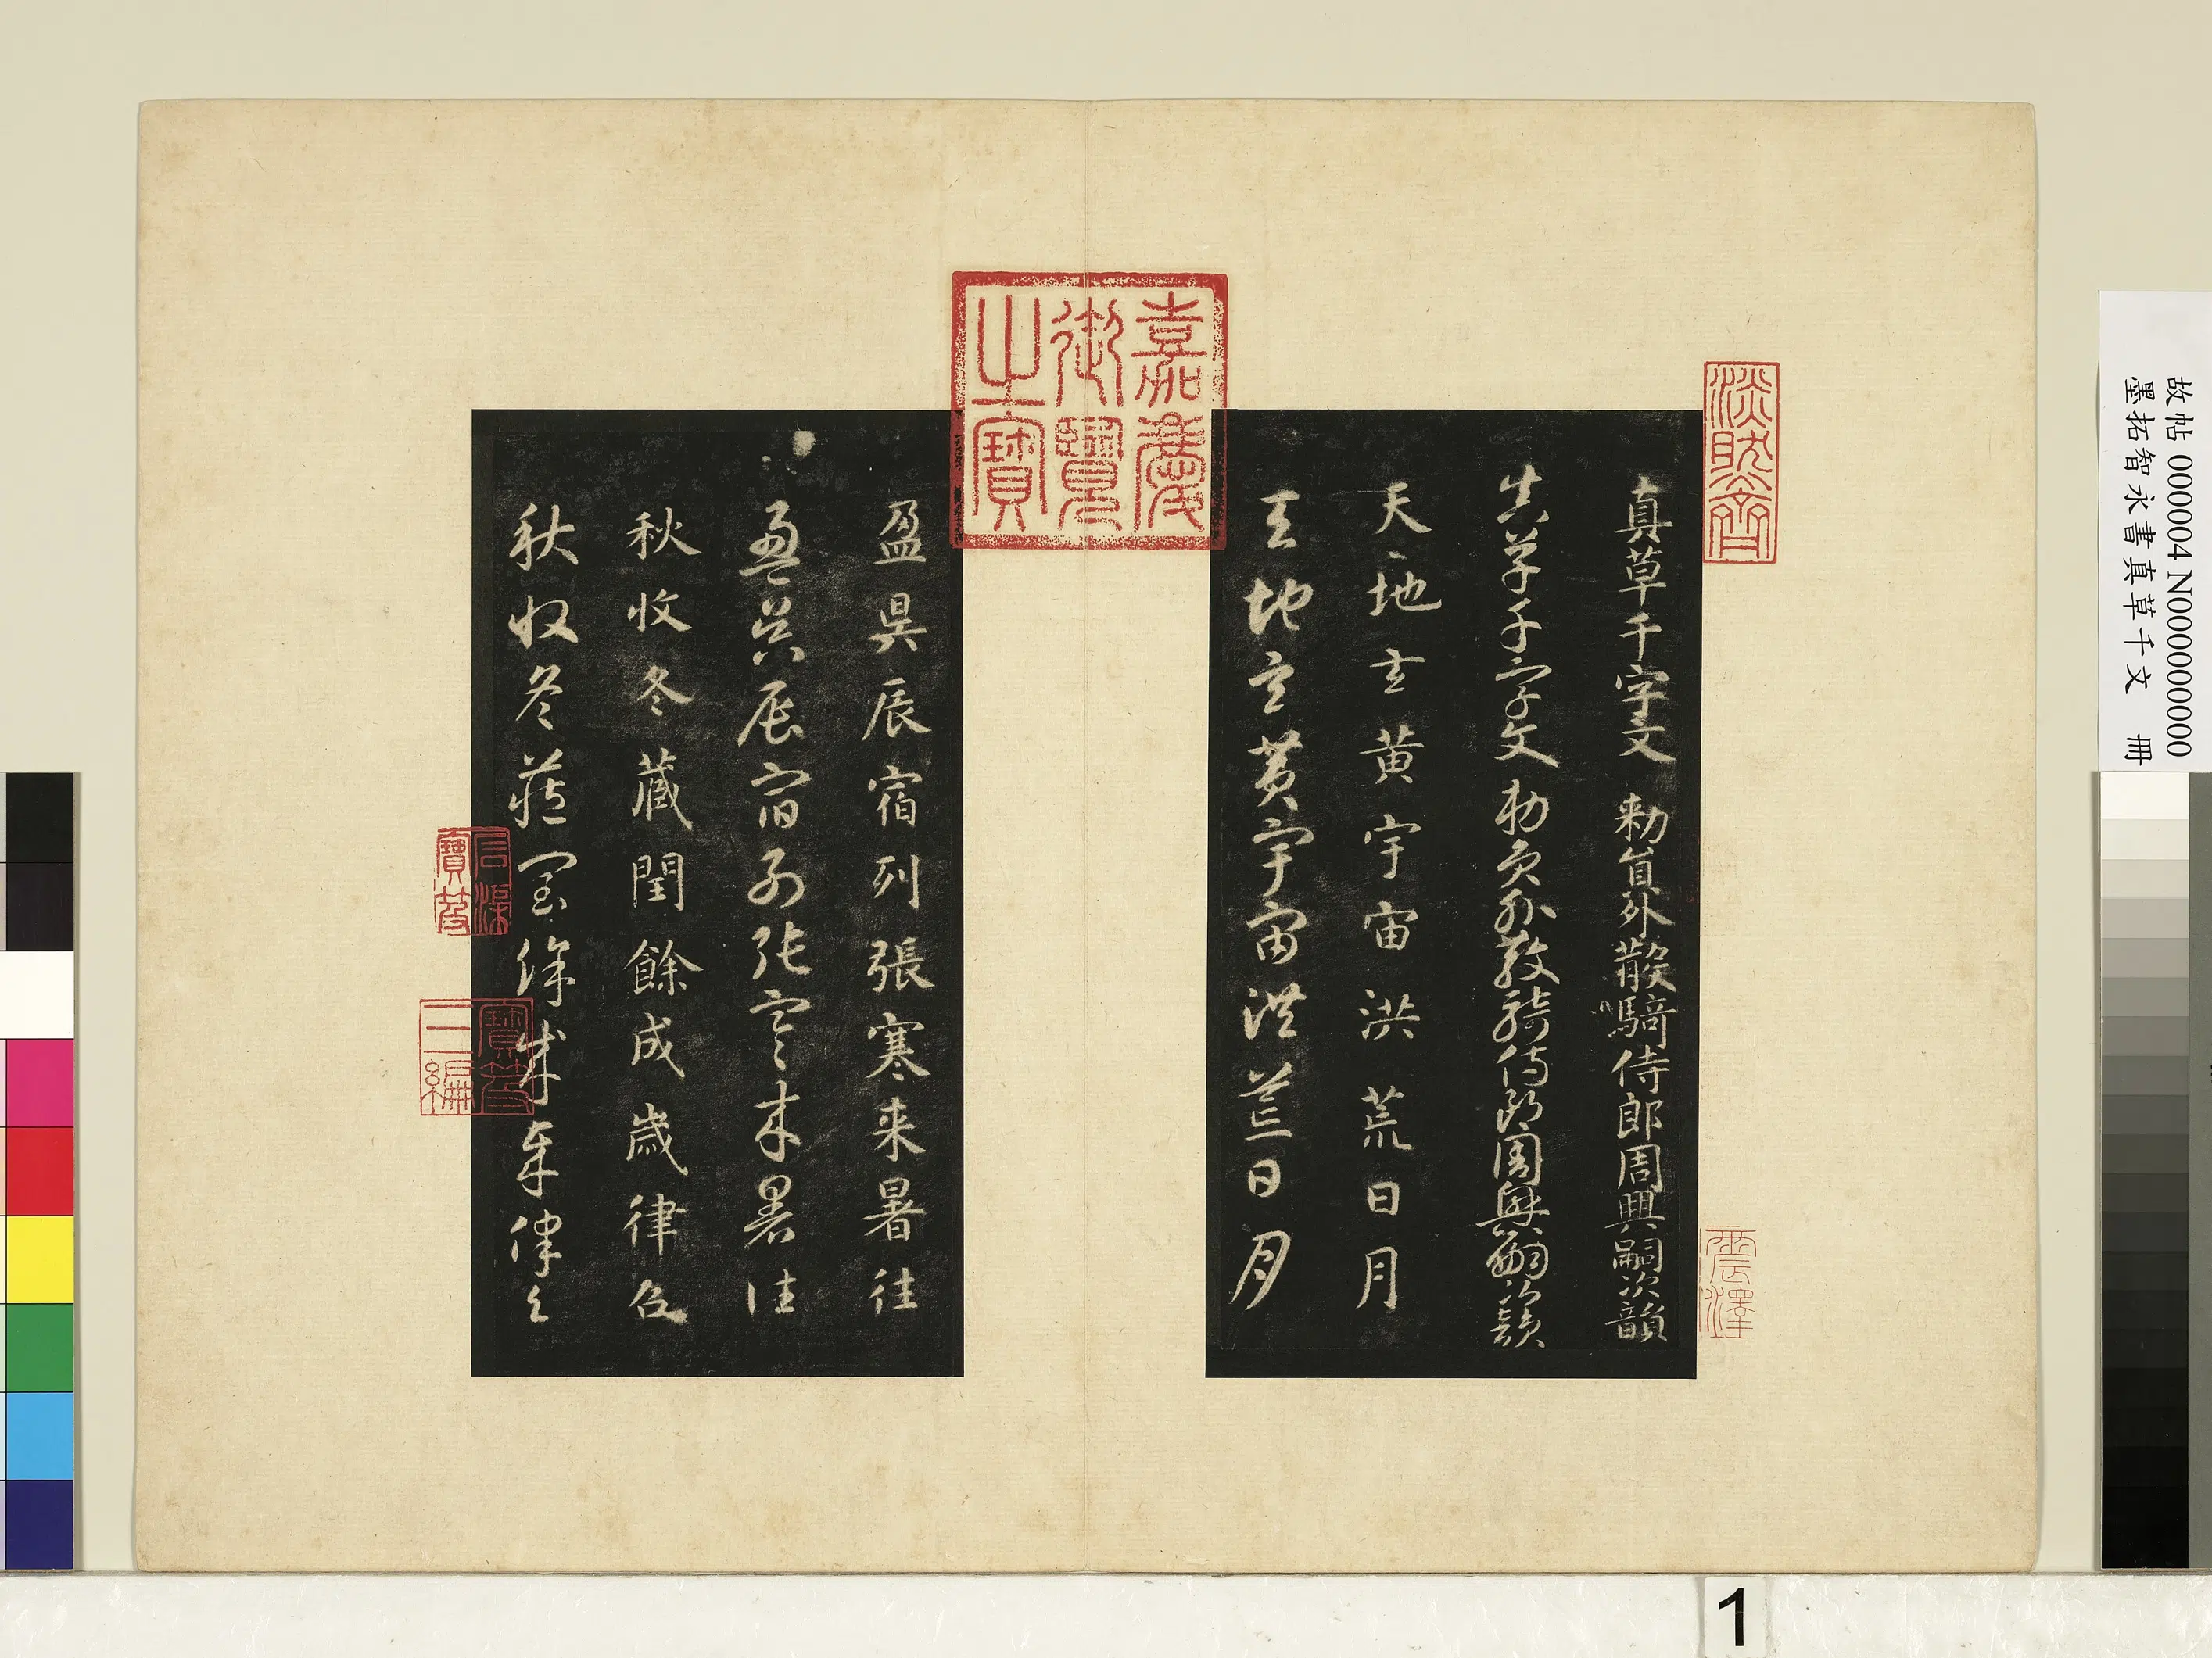 故帖 000004 N000000000
墨拓智永書真草千文　冊
淡眈齋
震澤
真草千字文 勑員外散騎侍郎周興嗣次韻
真草千字文 勑員外散騎侍郎周興嗣次韻
天地玄黃宇宙洪荒日月
天地玄黃宇宙洪荒日月
嘉慶
御覽
之寶
盈昃辰宿列張寒来暑往
盈昃辰宿列張寒来暑往
秋收冬藏閏餘成歲律召
秋收冬藏閏餘成歲律召
石渠
寶笈
寶笈
三編
1